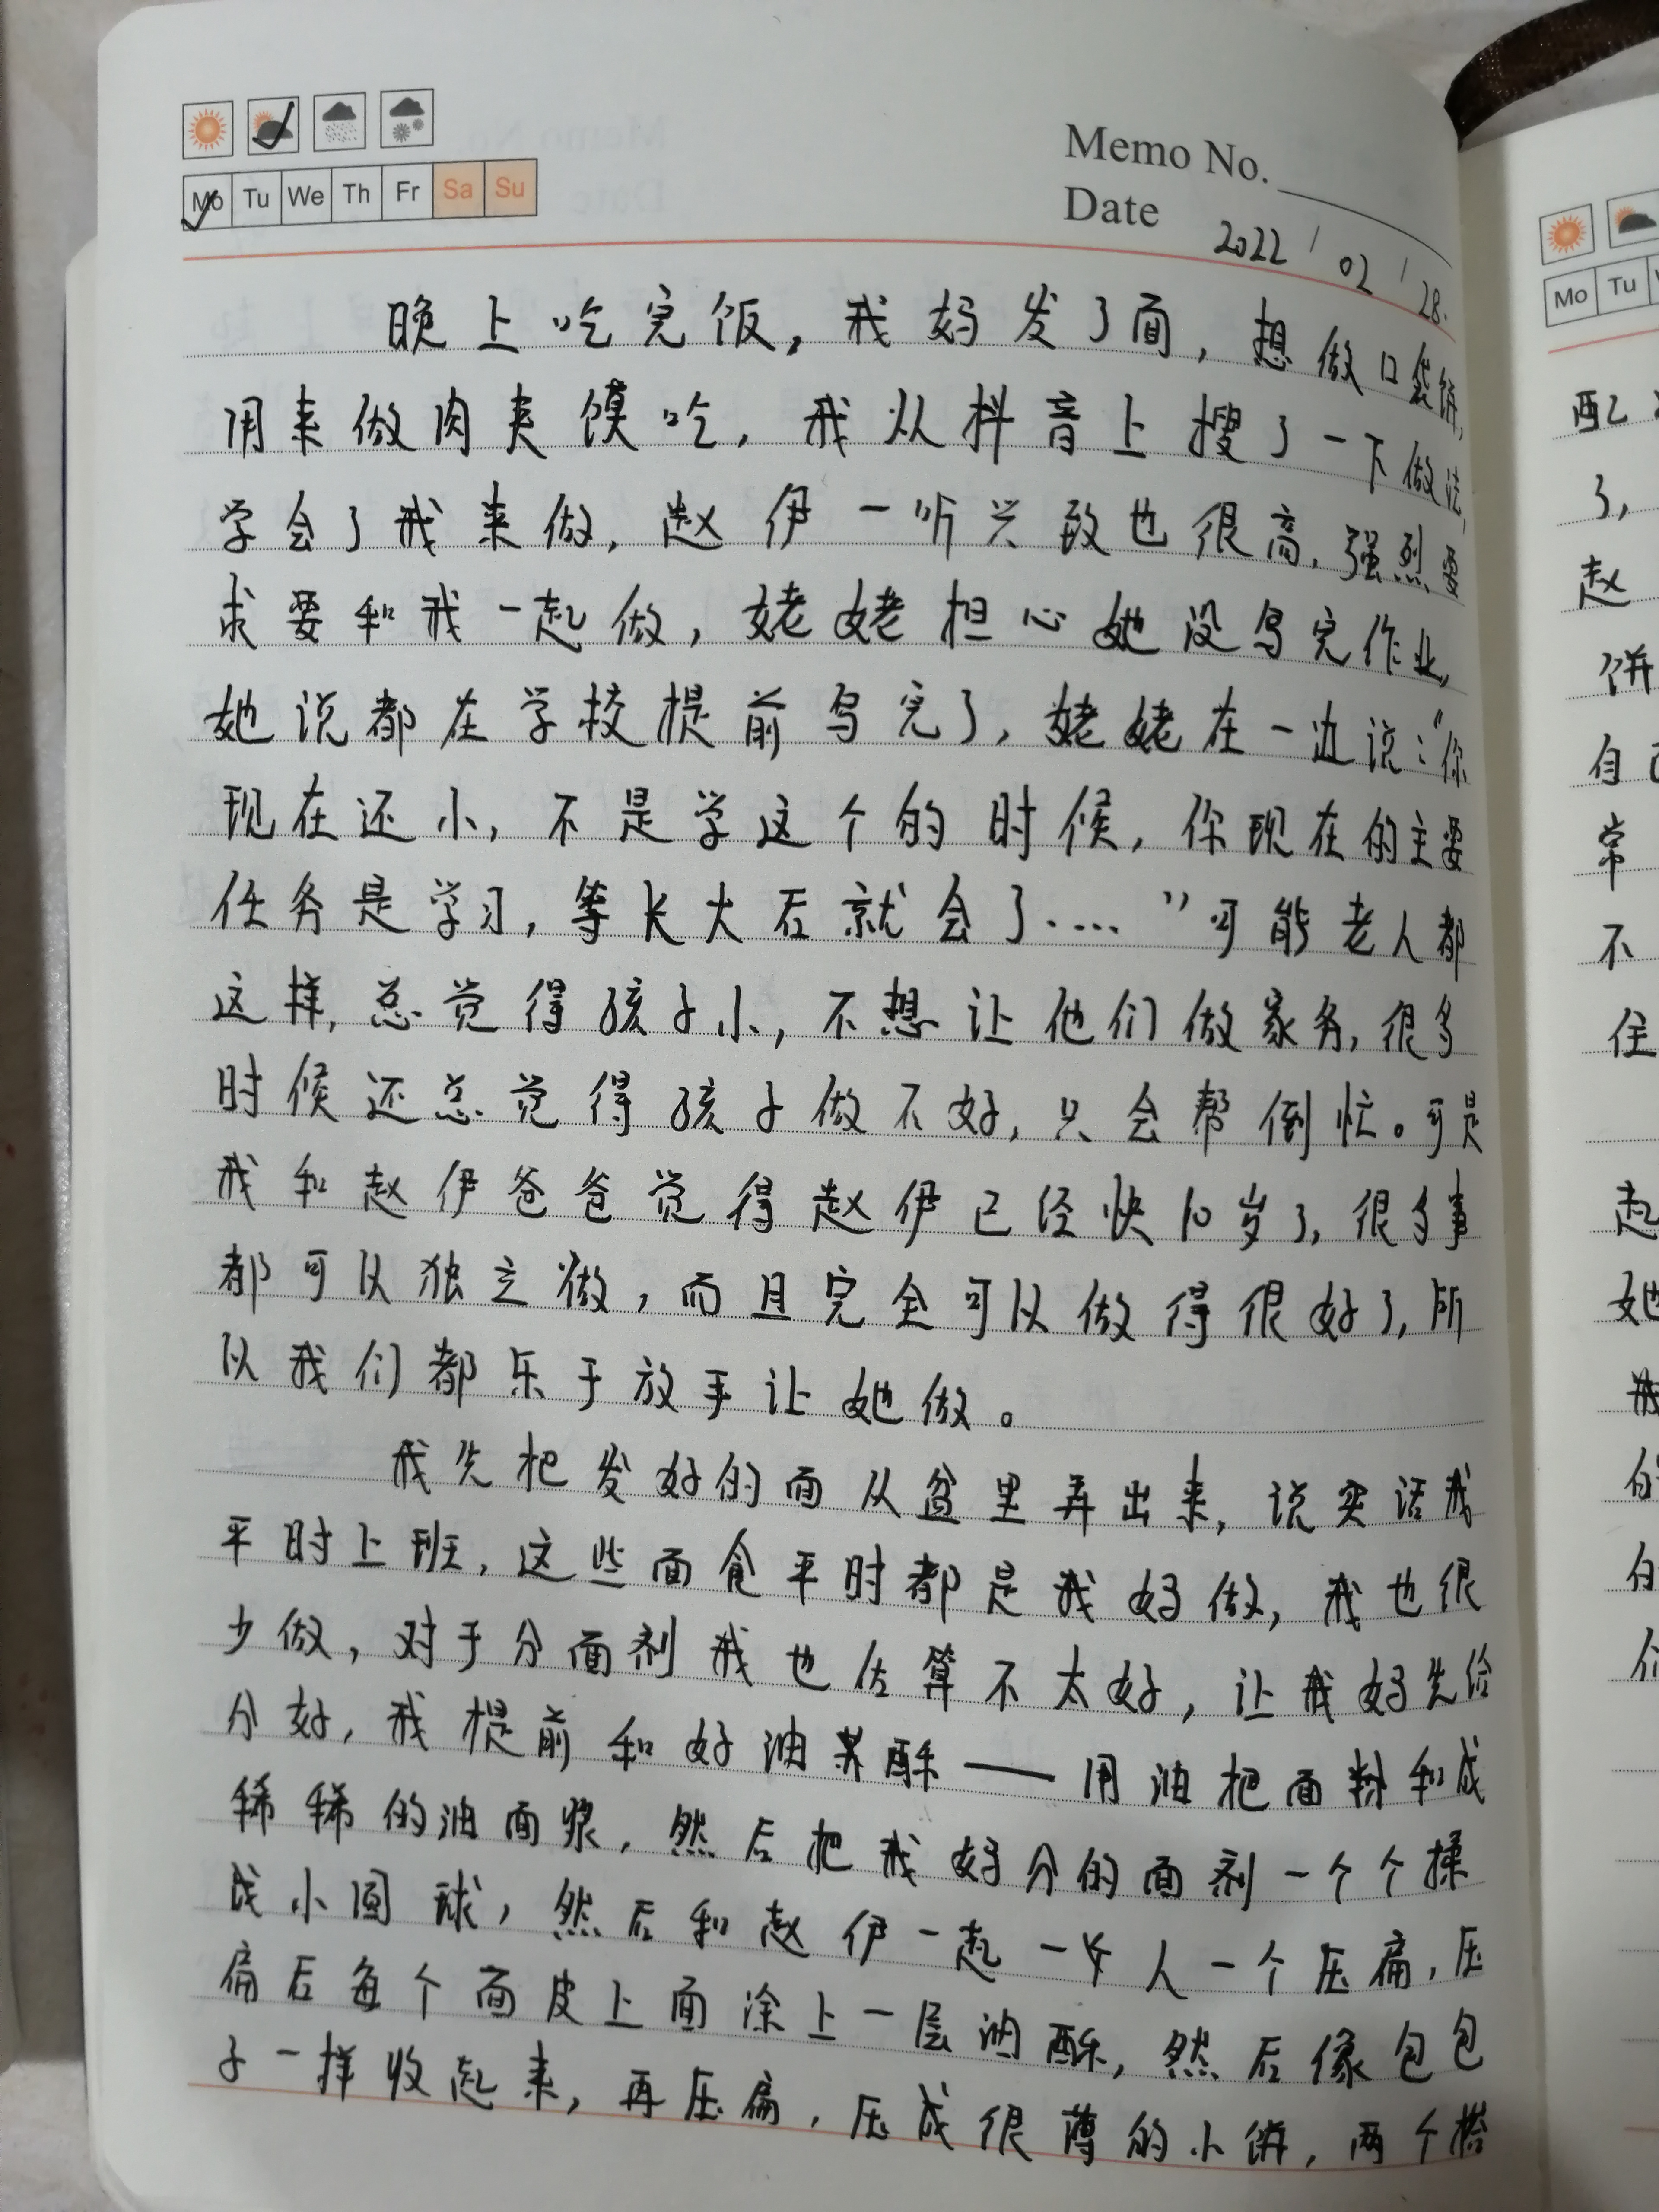 Memo No.
Mo Tu We Th Fr Sa Su
Date 2022/02/28.
晚上吃完饭,我妈发了面,想做口袋饼,
用来做肉夹馍吃,我从抖音上搜了一下做法,
学会了我来做,赵伊一听兴致也很高,强烈要
求要和我一起做,姥姥担心她没写完作业,
她说都在学校提前写完了,姥姥在一边说:“你
现在还小,不是学这个的时候,你现在的主要
任务是学习,等长大后就会了....”可能老人都
这样,总觉得孩子小,不想让他们做家务,很多
时候还总觉得孩子做不好,只会帮倒忙。可是
我和赵伊爸爸觉得赵伊已经快10岁了,很多事
都可以独立做,而且完全可以做得很好了,所
以我们都乐于放手让她做。
我先把发好的面从盆里弄出来,说实话我
平时上班,这些面食平时都是我妈做,我也很
少做,对于分面剂我也估算不太好,让我妈先给
分好,我提前和好油酥——用油把面粉和成
稀稀的油面浆,然后把我妈分的面剂一个个揉
成小圆球,然后和赵伊一起一人一个压扁,压
扁后每个面皮上面涂上一层油酥,然后像包包
子一样收起来,再压扁,压成很薄的小饼,两个
Mo Tu
配
了,
赵
饼
自己
常
不
住
起
她
我
的
的